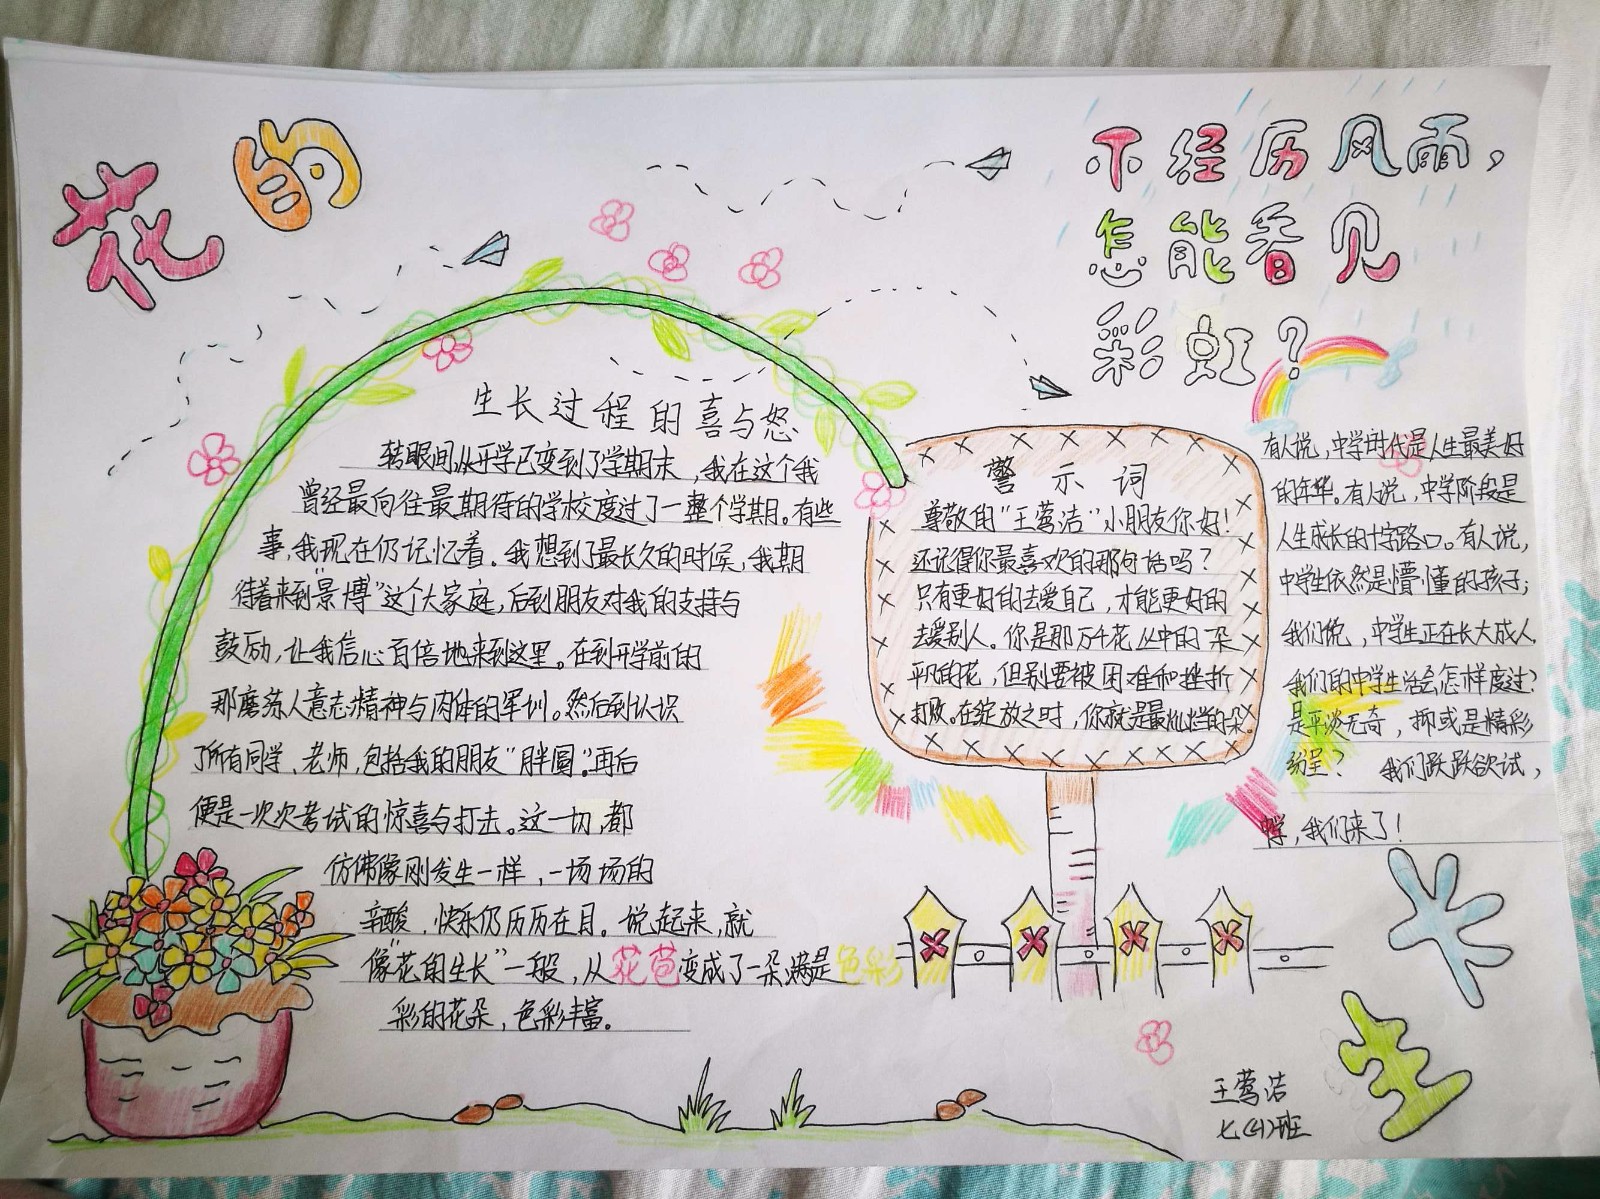 花的
生长
不经历风雨，
怎能看见
彩虹？
生长过程的喜与怒
转眼间，从开学已变到了学期末，我在这个我
曾经最向往最期待的学校度过了一整个学期。有些
事，我现在仍记忆着。我想到了最长久的时候，我期
待着来到“景博”这个大家庭，后到朋友对我的支持与
鼓励，让我信心百倍地来到这里。在到开学前的
那磨炼人意志精神与肉体的军训。然后到认识
了所有同学、老师，包括我的朋友“胖圆”。再后
便是一次次考试的惊喜与打击。这一切，都
仿佛像刚发生一样，一场场的
辛酸，快乐仍历历在目。说起来，就
像“花的生长”一般，从花苞变成了一朵满是色彩
彩的花朵，色彩丰富。
警示词
尊敬的“王莺洁”小朋友你好！
还记得你最喜欢的那句话吗？
只有更好的去爱自己，才能更好的
去爱别人。你是那万千花丛中的一朵
平凡的花，但别要被困难和挫折
打败。在绽放之时，你就是最灿烂的一朵。
有人说，中学时代是人生最美好
的年华。有人说，中学阶段是
人生成长的十字路口。有人说，
中学生依然是懵懂的孩子；
我们说，中学生正在长大成人
我们的中学生活会怎样度过？
是平淡无奇，抑或是精彩
纷呈？ 我们跃跃欲试，
中学，我们来了！
王莺洁
七(4)班